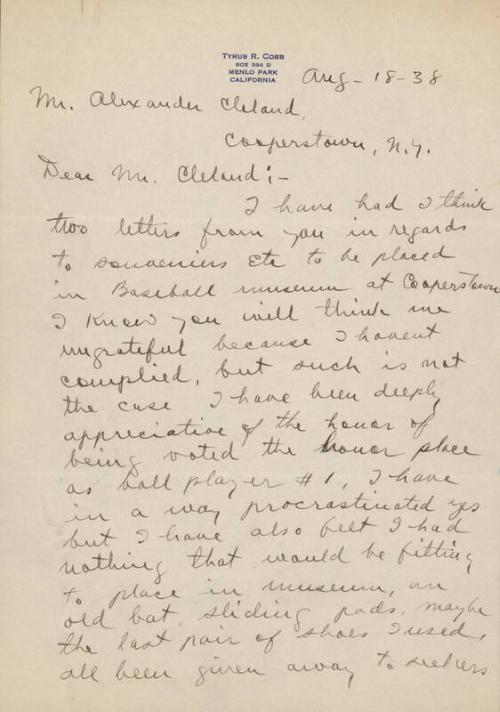 TYRUS R. COBB
BOX 594 D
MENLO PARK
CALIFORNIA
Aug - 18 - 38
Mr. Alexander Cleland,
Cooperstown, N.Y.
Dear Mr. Cleland:-
I have had I think
two letters from you in regards
to souveniers Etc to be placed
in Baseball museum at Cooperstown
I know you will think me
ungrateful because I havent
complied, but such is not
the case I have been deeply
appreciative of the honor of
being voted the honor place
as ball player #1, I have
in a way procrastinated yes
but I have also felt I had
nothing that would be fitting
to place in museum, an
old bat, sliding pads, maybe
the last pair of shoes I used,
all been given away to seekers